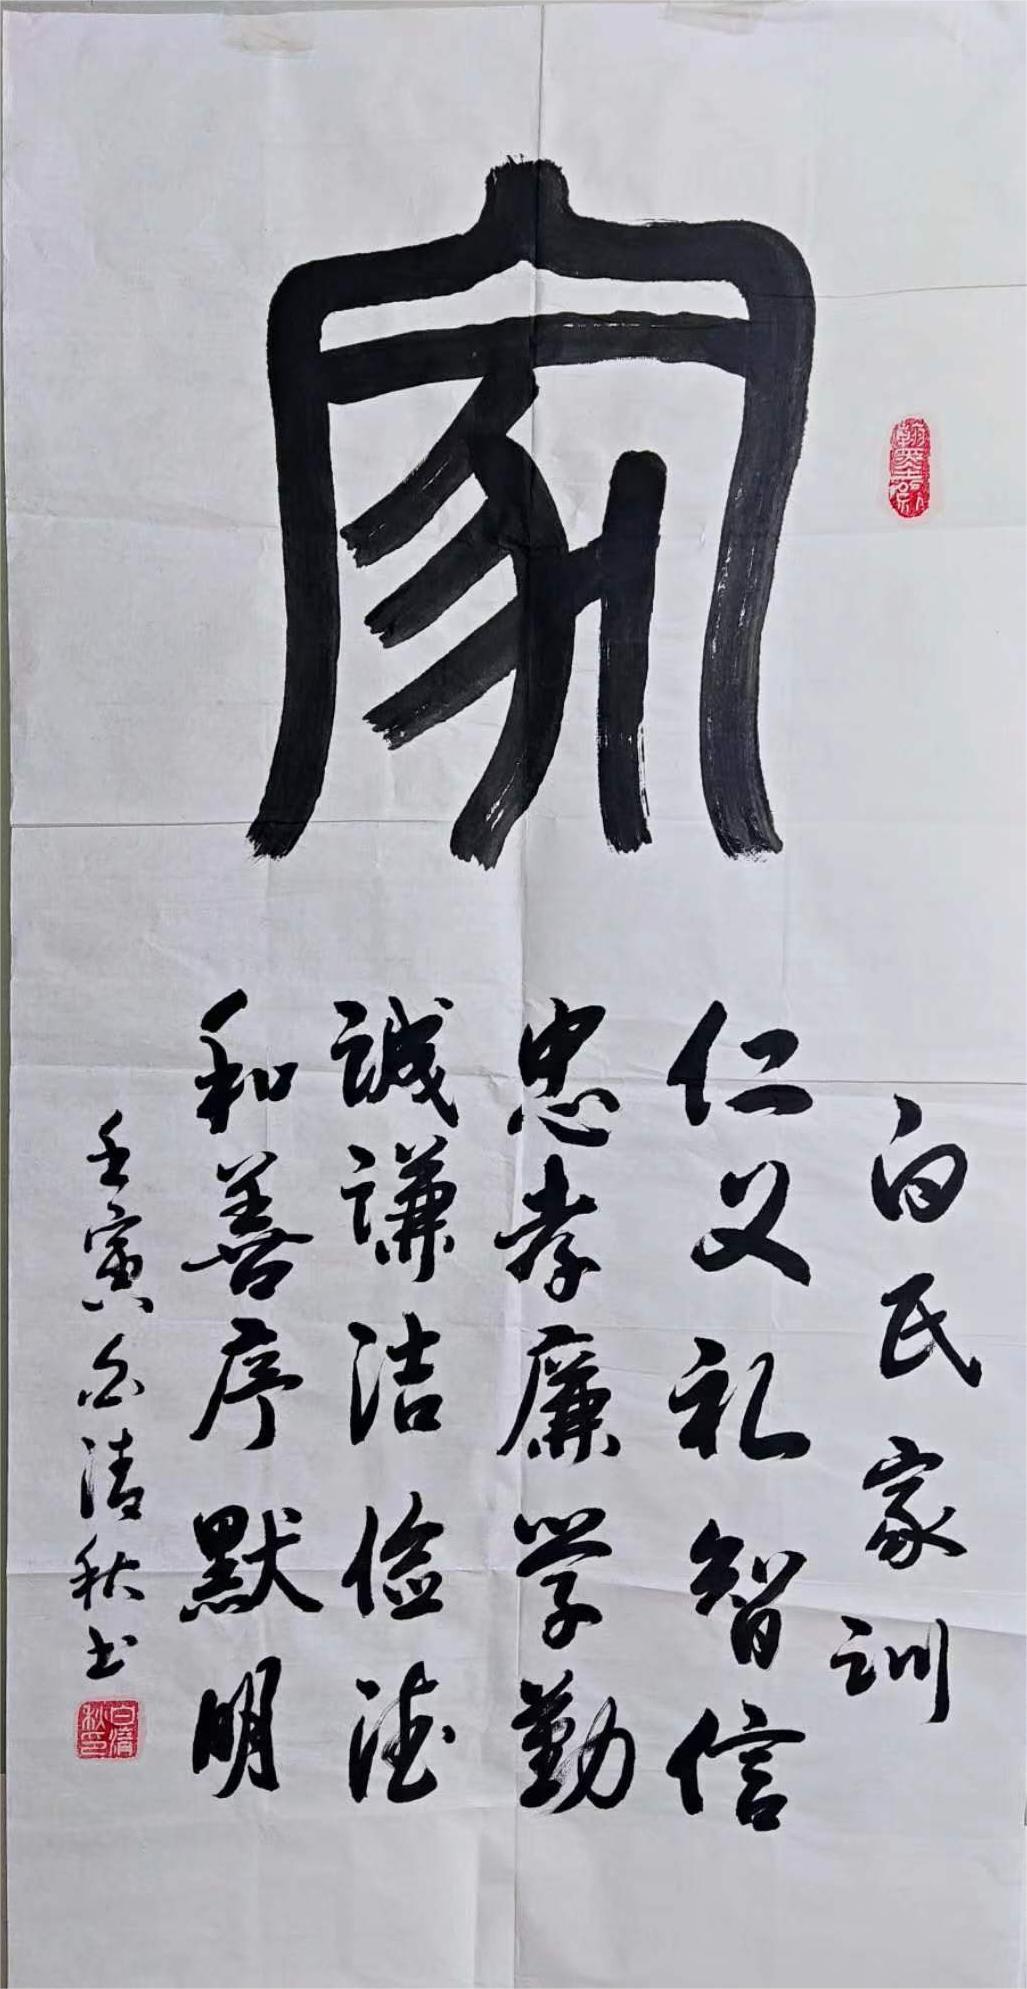 家
白氏家训
仁义礼智信
忠孝廉学勤
誠謙洁俭德
和善序默明
壬寅白清秋书
白清秋印